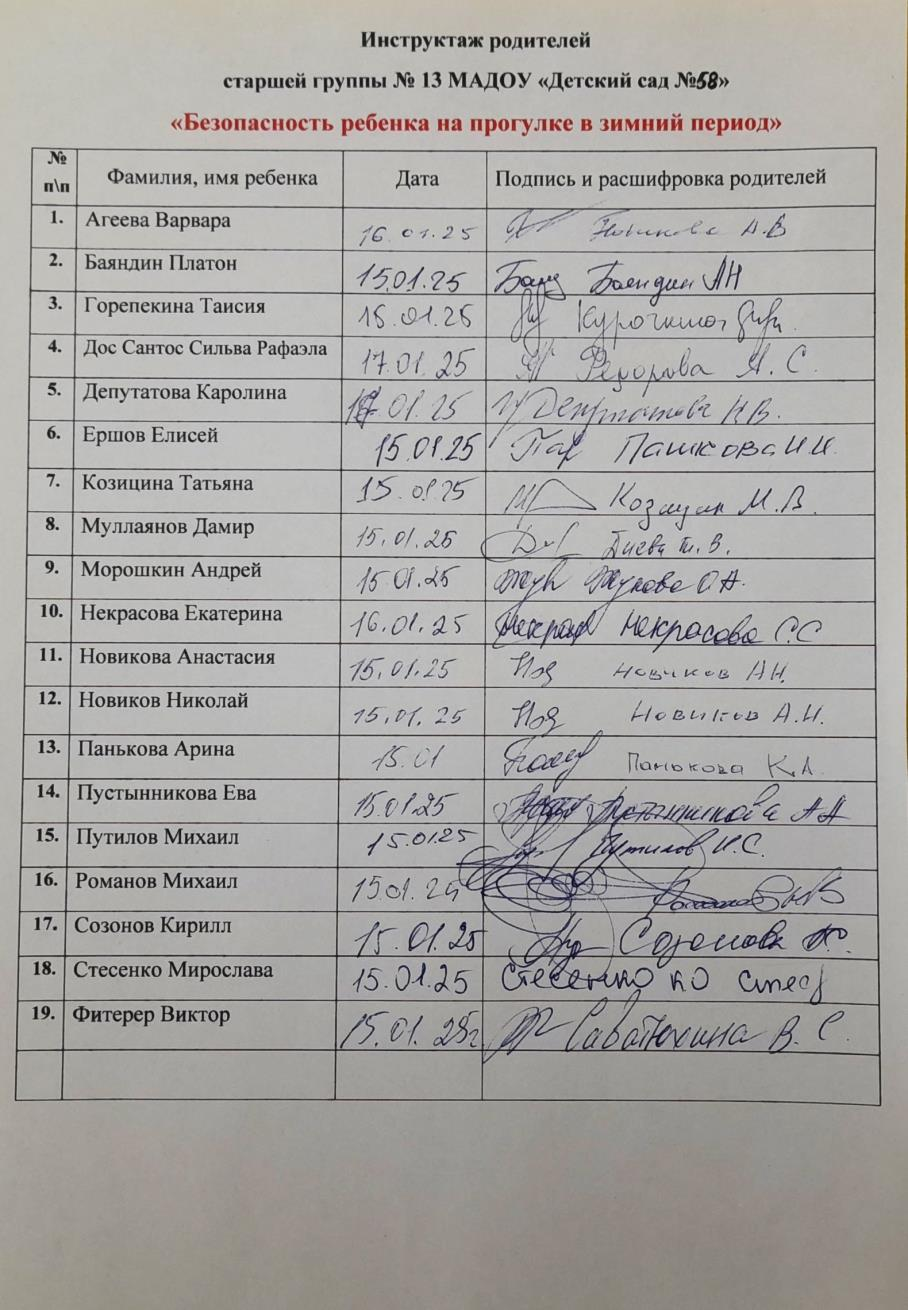 Инструктаж родителей
старшей группы № 13 МАДОУ «Детский сад №58»
«Безопасность ребенка на прогулке в зимний период»
№ п\п Фамилия, имя ребенка Дата Подпись и расшифровка родителей
1. Агеева Варвара 16.01.25 А.В
2. Баяндин Платон 15.01.25 Баяндин АН
3. Горепекина Таисия 15.01.25
4. Дос Сантос Сильва Рафаэла 17.01.25 Федорова А.С.
5. Депутатова Каролина 01.25 Депутатова Н.В.
6. Ершов Елисей 15.01.25 Пашкова И.И.
7. Козицина Татьяна 15.01.25 М.В.
8. Муллаянов Дамир 15.01.25 Т.В.
9. Морошкин Андрей 15.01.25 Жукова О.А.
10. Некрасова Екатерина 16.01.25 Некрасова С.С
11. Новикова Анастасия 15.01.25 Новиков АН.
12. Новиков Николай 15.01.25 Новиков А.Н.
13. Панькова Арина 15.01 Панькова К.А.
14. Пустынникова Ева 15.01.25 Пустынникова АА
15. Путилов Михаил 15.01.25 Путилов И.С.
16. Романов Михаил 15.01.25
17. Созонов Кирилл 15.01.25 Созонова
18. Стесенко Мирослава 15.01.25 Стесенко КО
19. Фитерер Виктор 15.01.25г Саватюхина В.С.